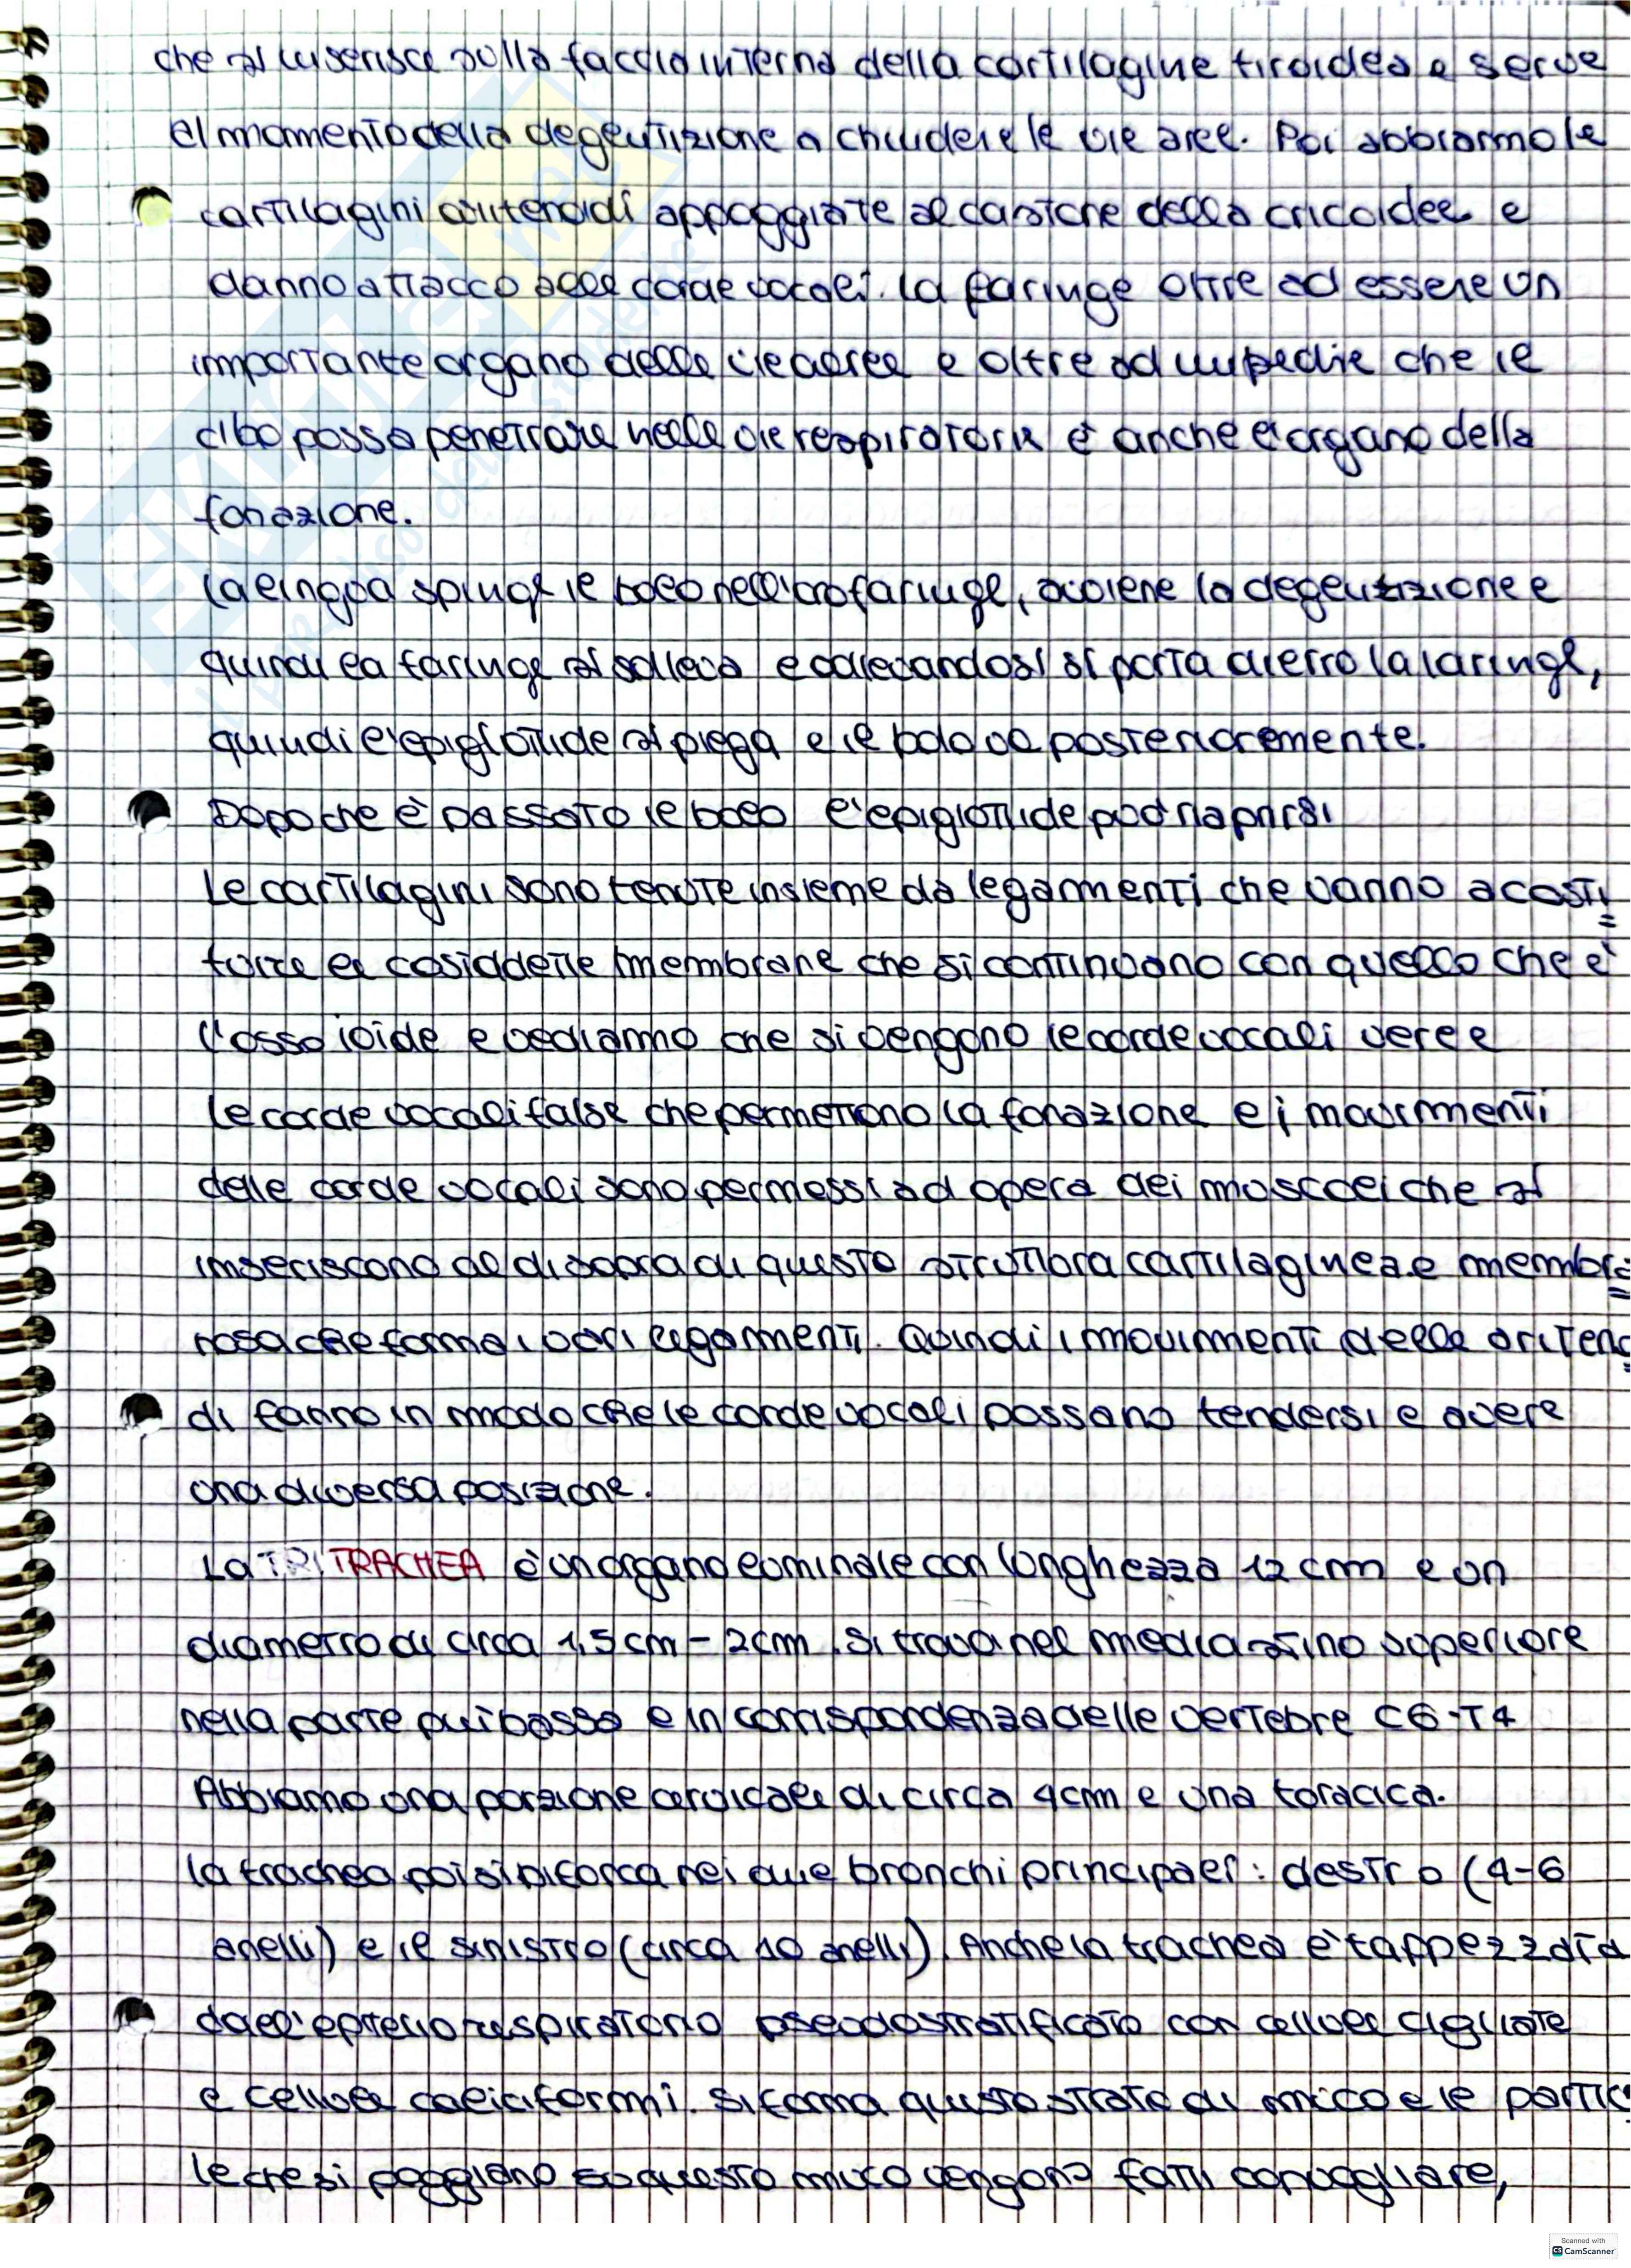 che si inserisce sulla faccia interna della cartilagine tiroidea e serve
al momento della degeutizione a chiudere le vie aree. Poi abbiamo le
cartilagini aritenoidi appoggiate al castone della cricoidee e
danno attacco alle corde vocali. La faringe oltre ad essere un
importante organo delle vie aeree e oltre ad impedire che il
cibo possa penetrare nelle vie respiratorie è anche l'organo della
fonazione.
La lingua spinge il bolo nell'orofaringe, avviene la degeutizione e
quindi la faringe si solleva e sollevandosi si porta dietro la laringe,
quindi l'epiglottide si piega e il bolo va posteriormente.
Dopo che è passato il bolo l'epiglottide può riaprirsi
Le cartilagini sono tenute insieme da legamenti che vanno a costi=
tuire le cosiddette membrane che si continuano con quello che è
l'osso ioide e vediamo che si vengono le corde vocali vere e
le corde vocali false che permettono la fonazione e i movimenti
delle corde vocali sono permessi ad opera dei muscoli che si
inseriscono al di sopra di questa struttura cartilaginea e membra=
nosa che forma i vari legamenti. Quindi i movimenti delle ariteno=
di fanno in modo che le corde vocali possano tendersi e avere
una diversa posizione.
La TRI TRACHEA è un organo luminale con lunghezza 12 cm e un
diametro di circa 1,5 cm - 2cm. Si trova nel mediastino superiore
nella parte più bassa e in corrispondenza delle vertebre C6-T4
Abbiamo una porzione cervicale di circa 4cm e una toracica.
la trachea poi si biforca nei due bronchi principali: destro (4-6
anelli) e il sinistro (circa 10 anelli). Anche la trachea è tappezzata
dall'epitelio respiratorio pseudostratificato con cellule cigliate
e cellule caliciformi. Si forma questo strato di muco e le partic
le che si poggiano su questo muco vengono fatti convogliare,
Scanned with
CS CamScanner